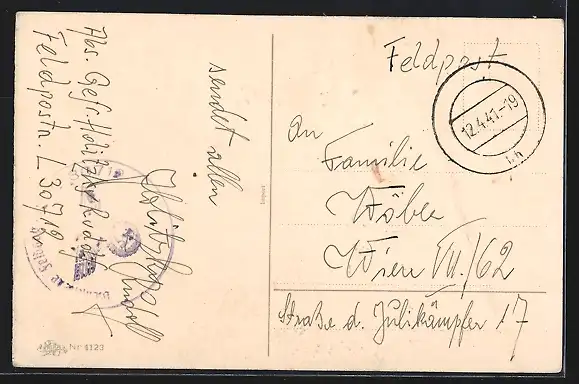 Feldpost
12.4.41.-19
An
Familie
Wöber
Wien VII./62
Straße d. Julikämpfer 17
sendet allen
Rudolf
Abs. Gefr. Holitzky Rudolf
Feldpostn. L 30719
Nr 4123
Import